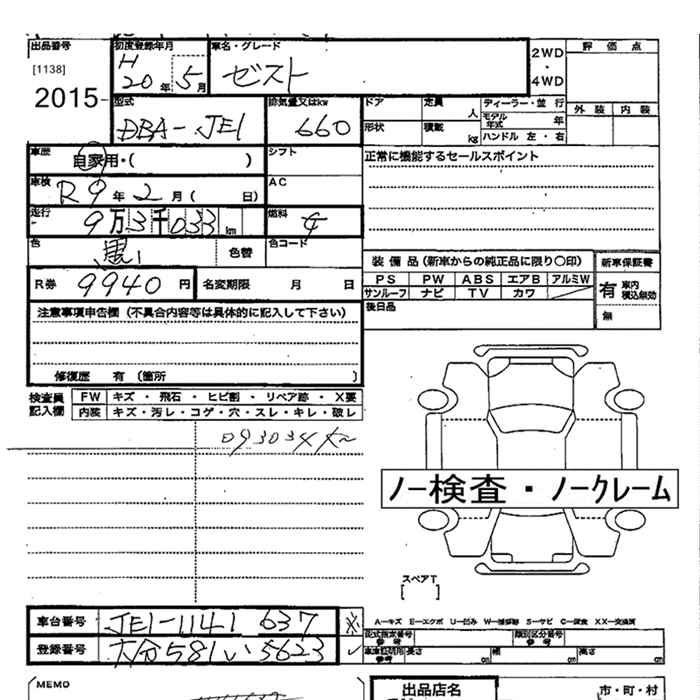 出品番号 初度登録年月 車名・グレード 評価点
[1138] H 20年 5月 ゼスト 2WD・4WD
2015- 外装 内装
型式 排気量又はkw ドア 定員 人 ディーラー・並行
DBA-JE1 660 形状 積載 kg モデル年式 年
ハンドル 左・右
車歴 自家用・( ) シフト 正常に機能するセールスポイント
車検 R9年 2月( 日) AC
走行 9万3千033km 燃料 ガ
色 黒 色替 色コード
装備品(新車からの純正品に限り〇印) 新車保証書
R券 9940円 名変期限 月 日 PS PW ABS エアB アルミW 有 車内積込無効
サンルーフ ナビ TV カワ
注意事項申告欄(不具合内容等は具体的に記入して下さい) 後日品 無
修復歴 有〔箇所 〕
検査員記入欄 FW キズ・飛石・ヒビ割・リペア跡・X要
内装 キズ・汚レ・コゲ・穴・スレ・キレ・破レ
093034km
ノー検査・ノークレーム
スペアT
[ ]
車台番号 JE1-1141637
A-キズ E-エクボ U-凹ミ W-補修跡 S-サビ C-腐食 X X-交換済
型式指定番号 参考 類別区分番号 参考
登録番号 大分581い5623
車庫証明用参考 長さ cm 幅 cm 高さ cm
MEMO 出品店名 市・町・村